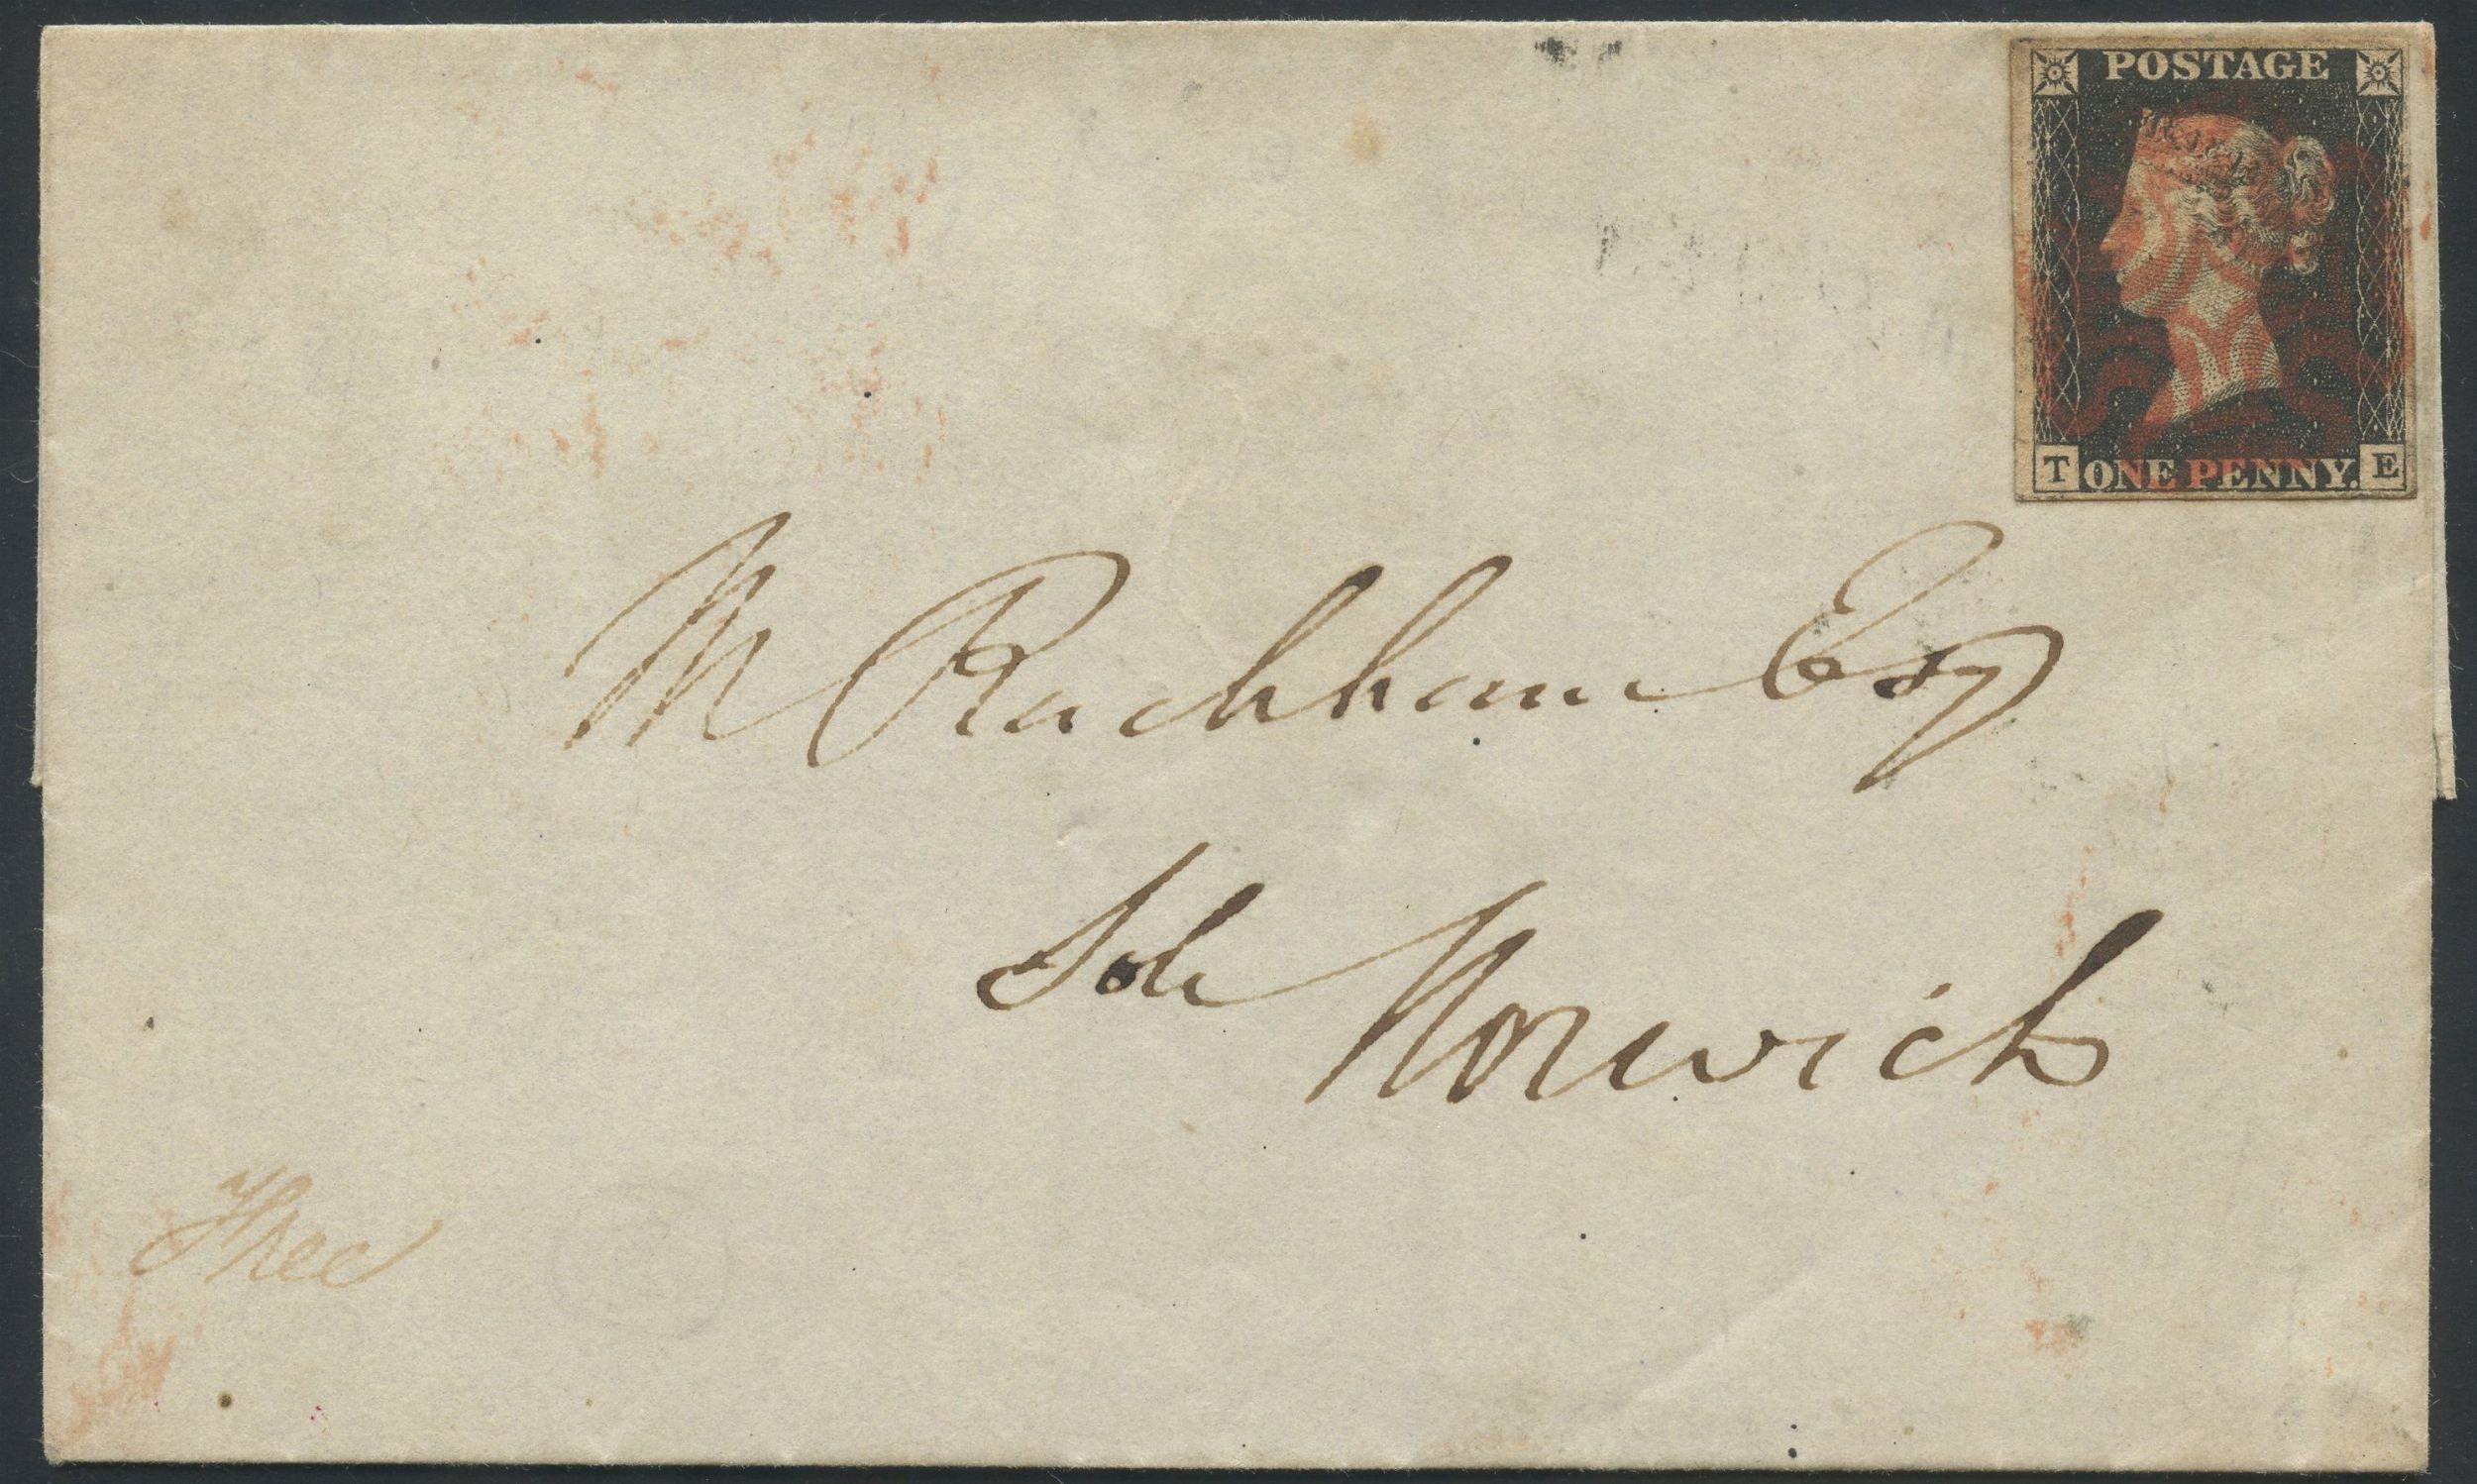 POSTAGE
T ONE PENNY. E
M Rackham Esq
Solr Norwich
Thee